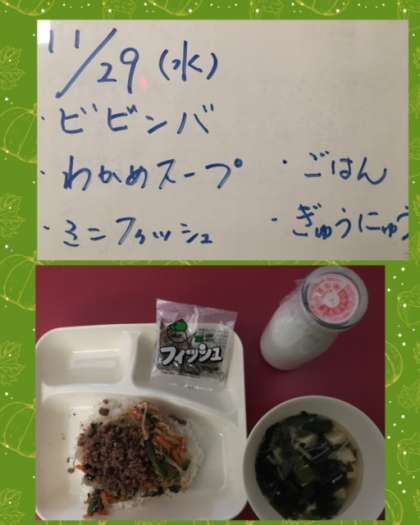 11/29(水)
・ビビンバ
・わかめスープ ・ごはん
・ミニフィッシュ ・ぎゅうにゅう
フィッシュ